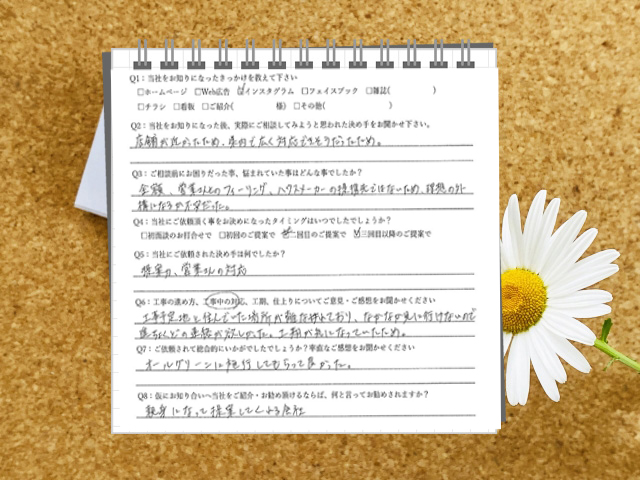 Q1：当社をお知りになったきっかけを教えて下さい
□ホームページ □Web広告 ☑インスタグラム □フェイスブック □雑誌( )
□チラシ □看板 □ご紹介( 様) □その他( )
Q2：当社をお知りになった後、実際にご相談してみようと思われた決め手をお聞かせ下さい。
店舗が近かったため、県内で広く対応できそうだったため。
Q3：ご相談前にお困りだった事、悩まれていた事はどんな事でしたか？
金額、営業さんとのフィーリング、ハウスメーカーの提携先ではないため、理想の外
構になるか不安だった。
Q4：当社にご依頼頂く事をお決めになったタイミングはいつでしたでしょうか？
□初面談のお打合せで □初回のご提案で 二回目のご提案で ☑三回目以降のご提案で
Q5：当社にご依頼された決め手は何でしたか？
提案力、営業さんの対応
Q6：工事の進め方、工事中の対応、工期、仕上りについてご意見・ご感想をお聞かせください
工事予定地と住んでいた場所が離れており、なかなか見に行けないので
連絡が欲しかった。工期が気になっていたため。
Q7：ご依頼されて総合的にいかがでしたでしょうか？率直なご感想をお聞かせください
オールグリーンに施行してもらって良かった。
Q8：仮にお知り合いへ当社をご紹介・お勧め頂けるならば、何と言ってお勧めされますか？
親身になって提案してくれる会社